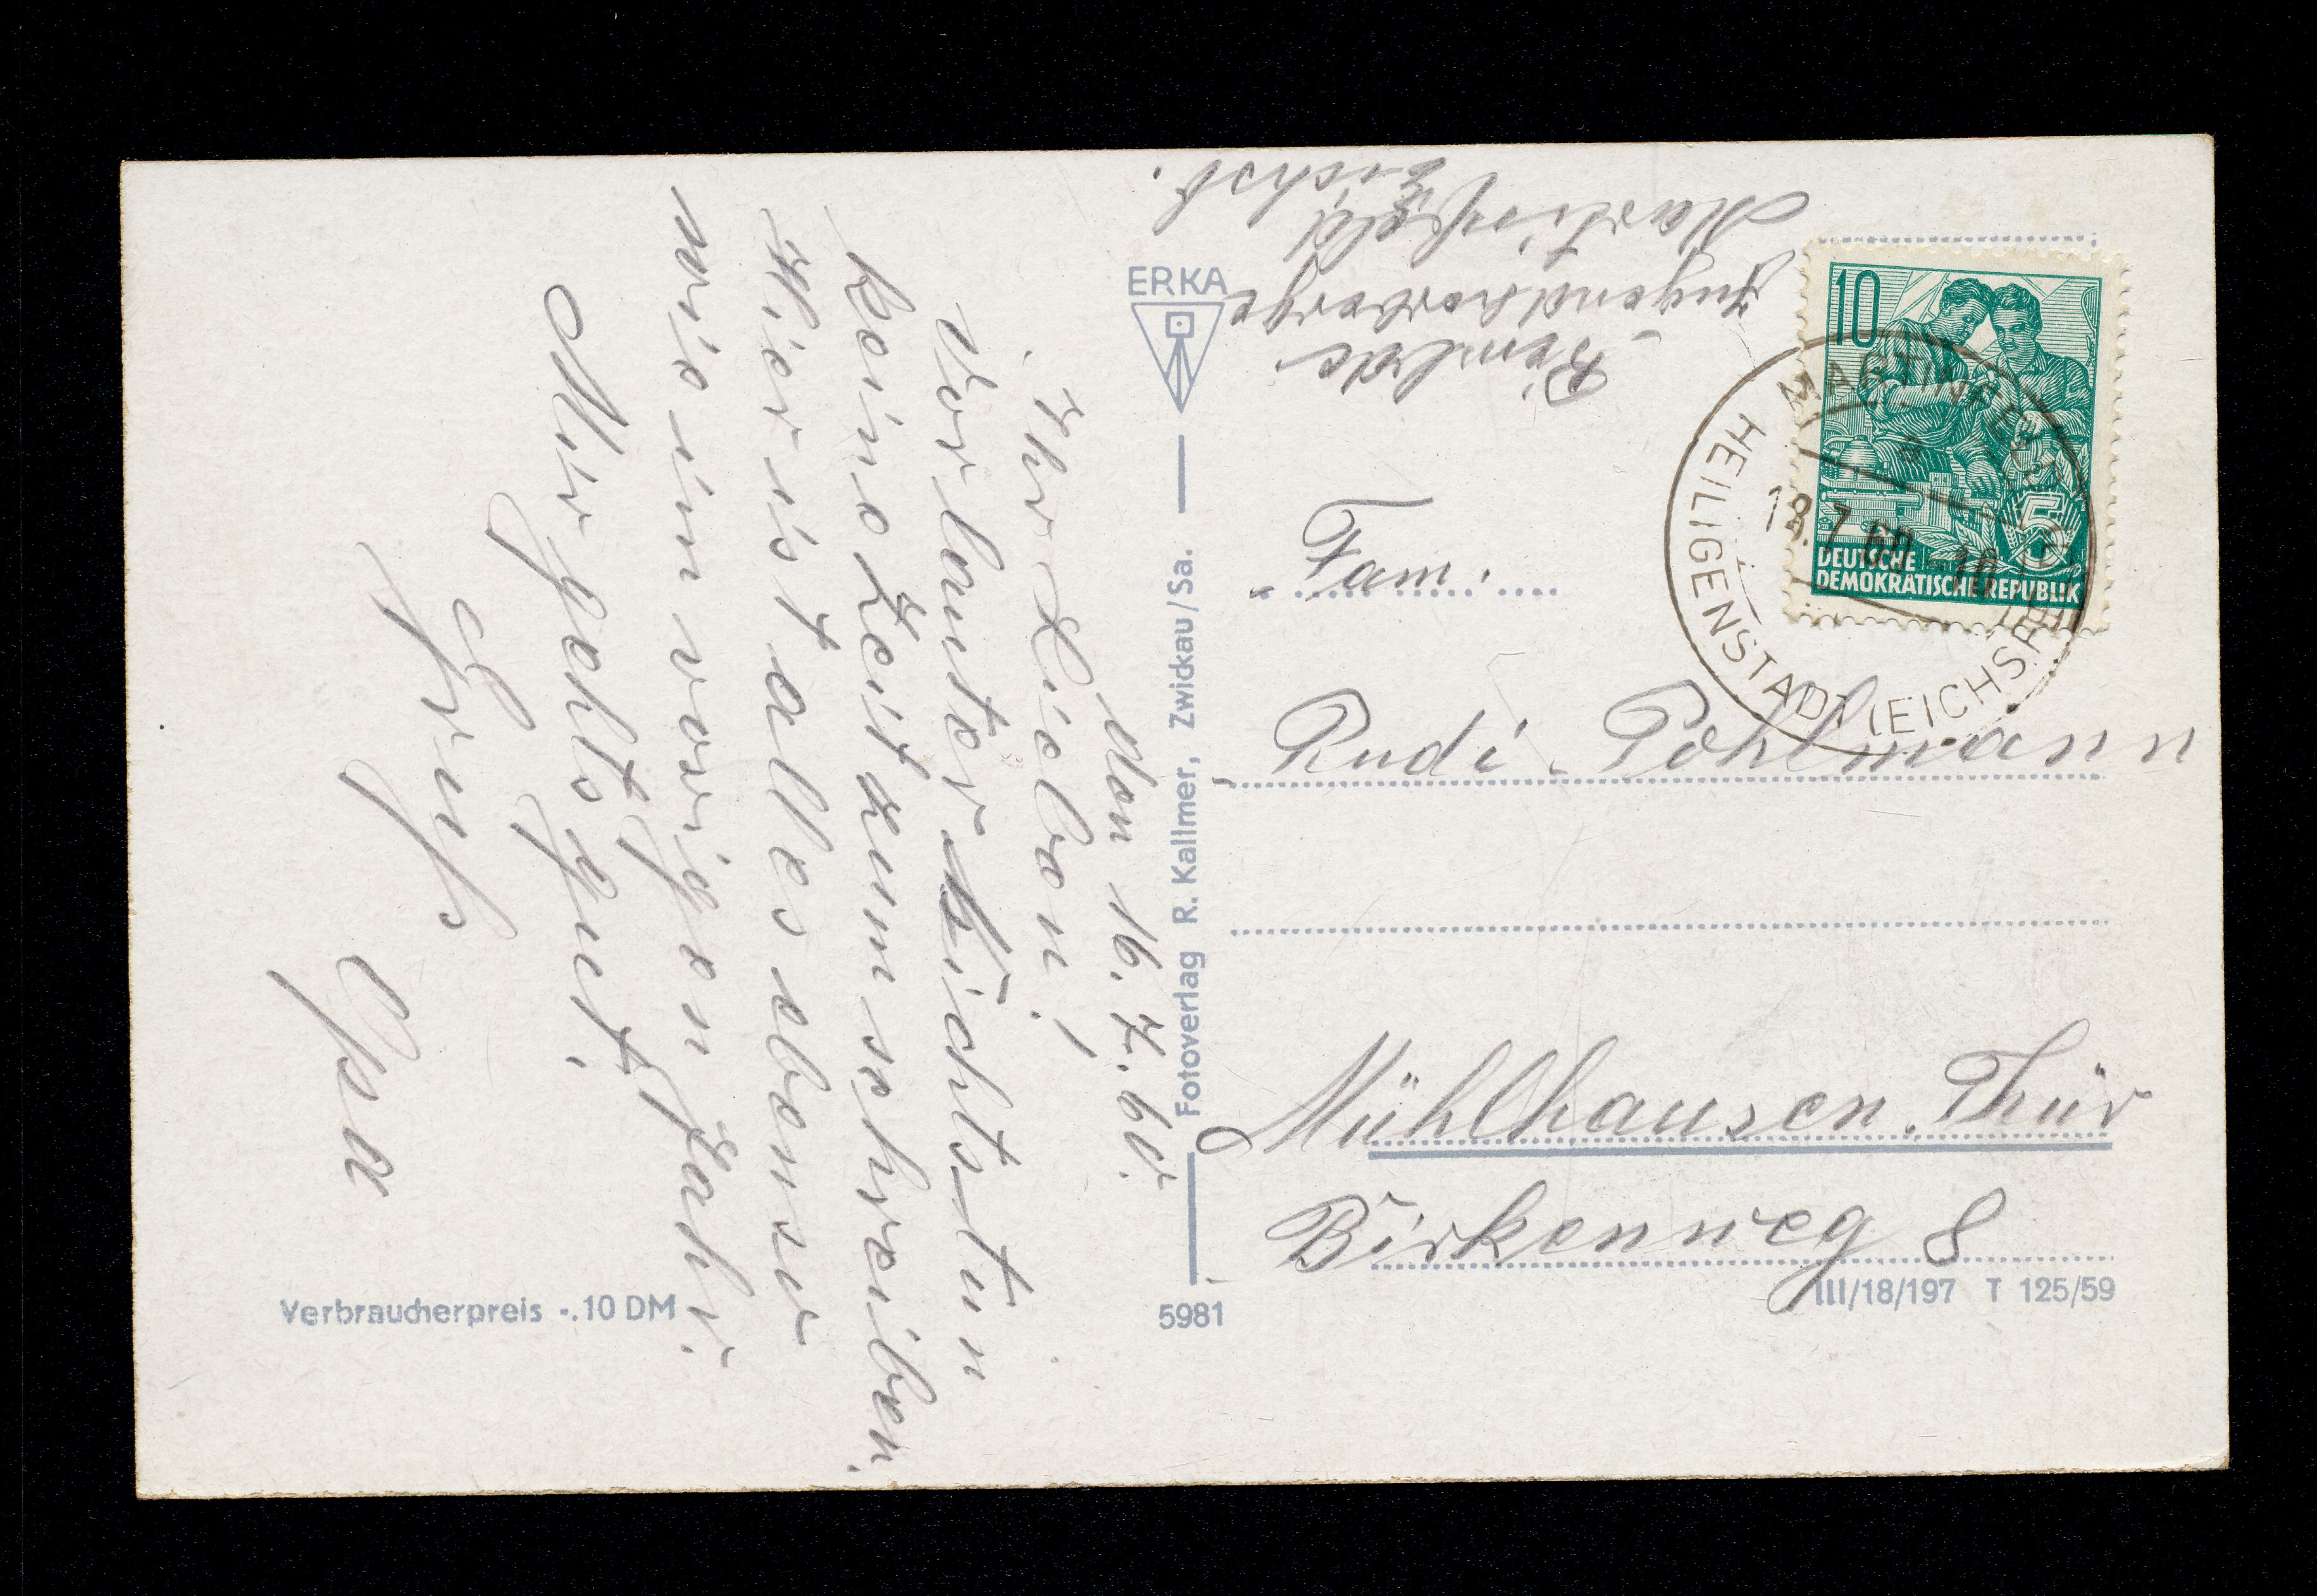 den 16. 7. 60.
Ihr Lieben!
Vor lauter Nichtstun
keine Zeit zum schreiben.
Hier ist alles ebenso
wie im vorigen Jahr.
Mir gehts gut.
Gruß
Opa
Jugendherberge
Martinfeld
Eichsf.
ERKA
Fotoverlag R. Kallmer, Zwickau/Sa.
5981
Verbraucherpreis -.10 DM
10
5
DEUTSCHE
DEMOKRATISCHE REPUBLIK
MARTINFELD
18.7.60-10
HEILIGENSTADT (EICHSF
Fam.
Rudi Pohlmann
Mühlhausen. Thür
Birkenweg 8
III/18/197 T 125/59